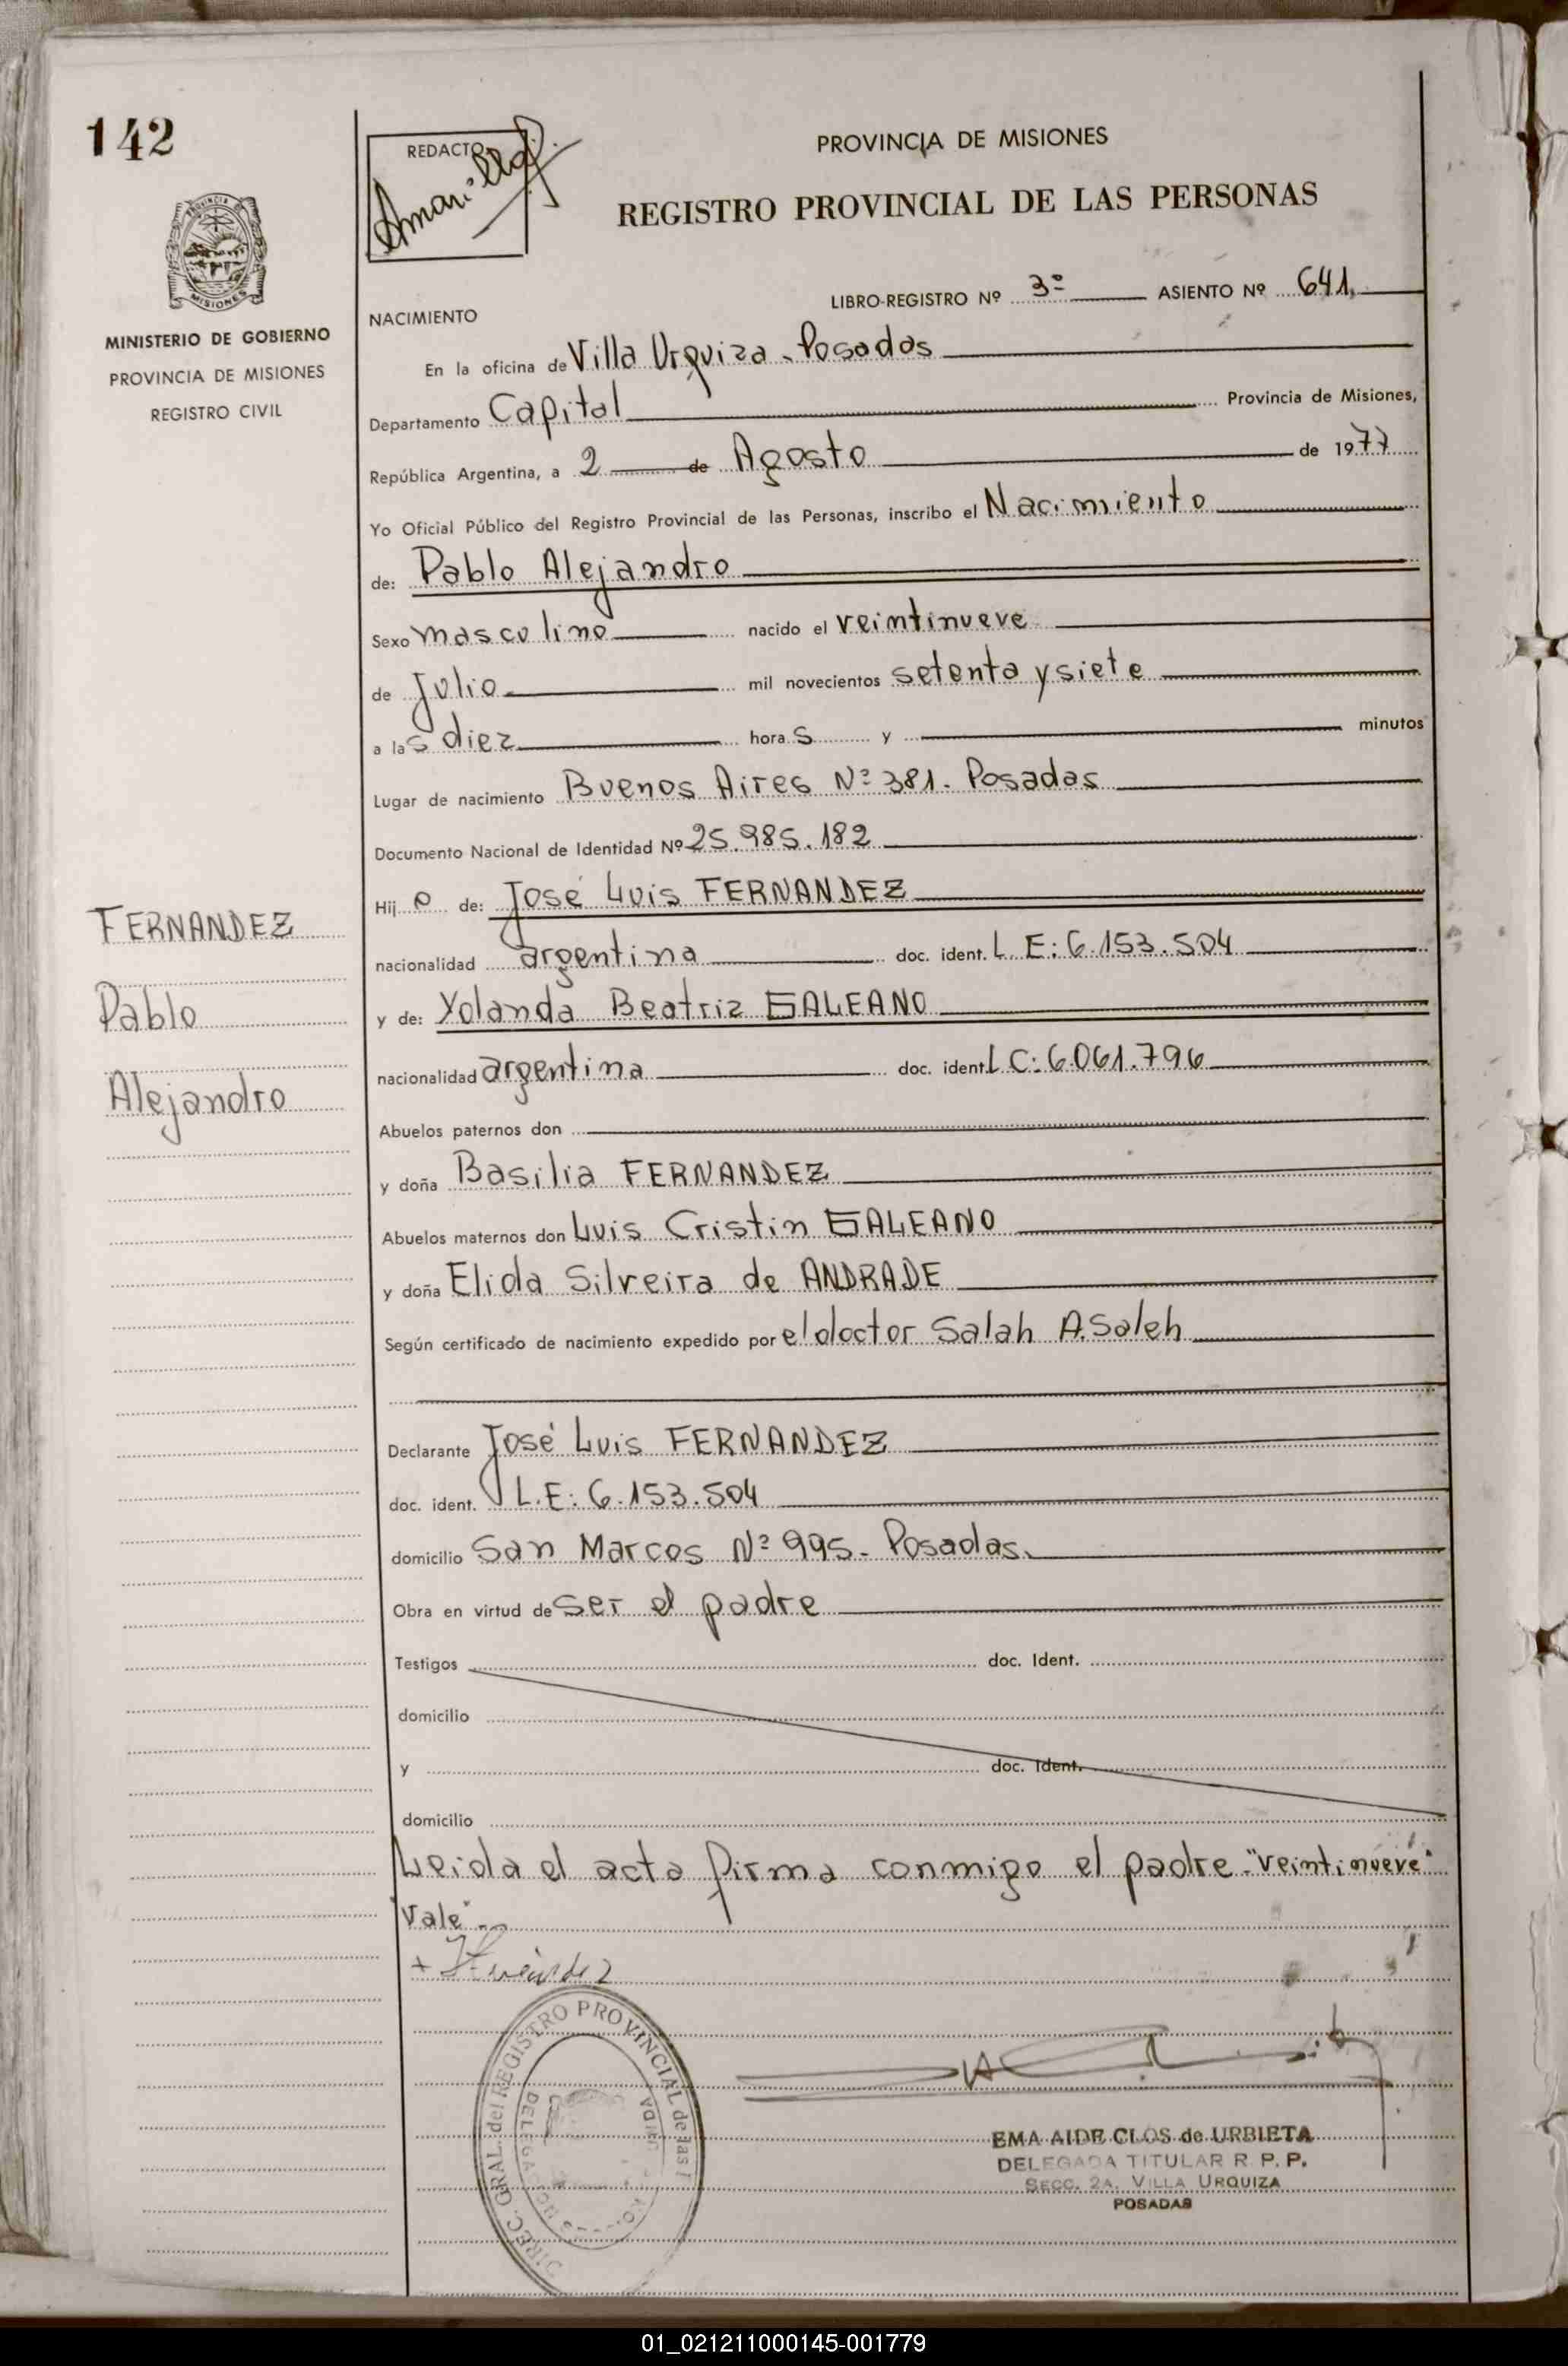 142
REDACTO
Amarilla
PROVINCIA DE MISIONES
REGISTRO PROVINCIAL DE LAS PERSONAS
PROVINCIA
MISIONES
MINISTERIO DE GOBIERNO
PROVINCIA DE MISIONES
REGISTRO CIVIL
LIBRO-REGISTRO Nº 3º ASIENTO Nº 641.
NACIMIENTO
En la oficina de Villa Urquiza - Posadas
Departamento Capital Provincia de Misiones,
República Argentina, a 2 de Agosto de 1977
Yo Oficial Público del Registro Provincial de las Personas, inscribo el Nacimiento
de: Pablo Alejandro
Sexo masculino nacido el veintinueve
de Julio mil novecientos setenta y siete
a las diez horas y minutos
Lugar de nacimiento Buenos Aires Nº 381. Posadas
Documento Nacional de Identidad Nº 25.985.182
Hijo de: José Luis FERNANDEZ
nacionalidad argentina doc. ident. L.E: 6.153.504
y de: Yolanda Beatriz GALEANO
nacionalidad argentina doc. ident. LC: 6.061.796
Abuelos paternos don
y doña Basilia FERNANDEZ
Abuelos maternos don Luis Cristin GALEANO
y doña Elida Silveira de ANDRADE
Según certificado de nacimiento expedido por el doctor Salah A. Saleh
Declarante José Luis FERNANDEZ
doc. ident. L.E: 6.153.504
domicilio San Marcos Nº 995- Posadas.
Obra en virtud de ser el padre
Testigos doc. Ident.
domicilio
y doc. Ident.
domicilio
Leida el acta firma conmigo el padre-"veintinueve"
Vale"-
FERNANDEZ
Pablo
Alejandro
DIREC. GRAL. del REGISTRO PROVINCIAL de las
EMA AIDE CLOS de URBIETA
DELEGADA TITULAR R. P. P.
SECC. 2A. VILLA URQUIZA
POSADAS
01_021211000145-001779